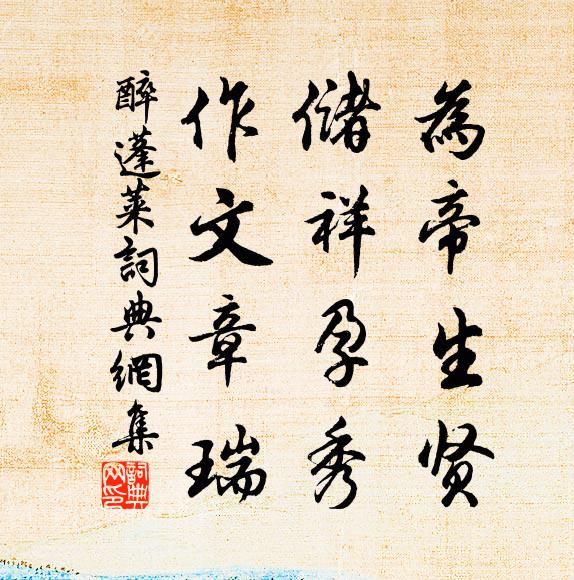 為帝生贤
儲祥孕秀
作文章瑞
醉蓬莱詞典網集
詞典网印